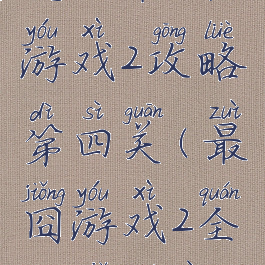 yóu xì gōng lüè
游戏2攻略
dì sì guān zuì
第四关(最
jiǒng yóu xì quán
囧游戏2全